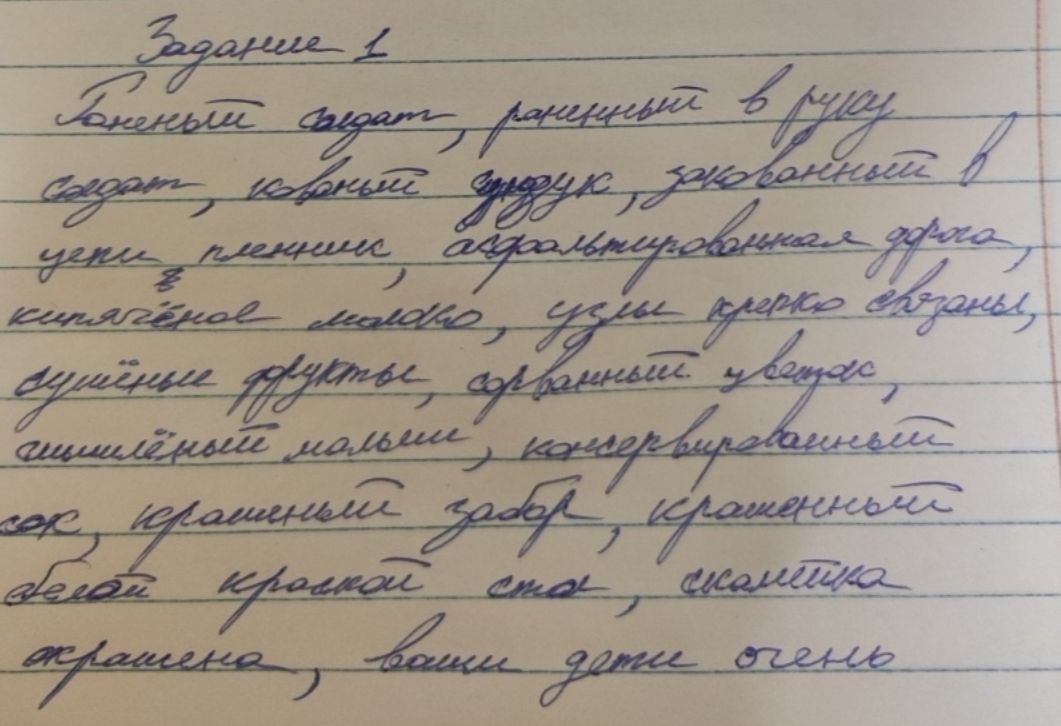 Задание 1
Раненый солдат, раненный в руку
солдат, кованый сундук, закованный в
цепи пленник, асфальтированная дорога,
кипячёное молоко, узлы крепко связаны,
сушёные фрукты, сорванный цветок,
смышлёный малыш, консервированный
сок, крашеный забор, крашенный
белой краской стол, скамейка
окрашена, ваши дети очень